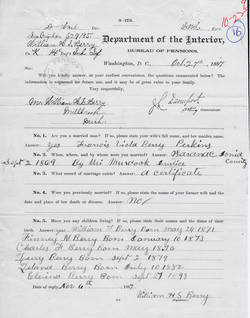 3-173.
Department of the Interior,
BUREAU OF PENSIONS,
Washington, D. C., Oct 27th, 1897
Will you kindly answer, at your earliest convenience, the questions enumerated below? The
information is requested for future use, and it may be of great value to your family.
Very respectfully,
Mr William H. S. Berry
Millbrook
Mich
Commissioner.
No. 1. Are you a married man? If so, please state your wife's full name, and her maiden name.
Answer: yes Francis Viola Berry Perkins
No. 2. When, where, and by whom were you married? Answer:
Sept 2 1869 By
No. 3. What record of marriage exists? Answer: A Certificate
No. 4. Were you previously married? If so, please state the name of your former wife and the
date and place of her death or divorce. Answer: No
No. 5. Have you any children living? If so, please state their names and the dates of their
birth. Answer: yes William F Berry Born May 24 1871
M Berry Born January 10 1873
Charles F Berry Born May 1876
Perry Berry Born Sept 2 1879
Leland Berry Born July 10 1882
Berry Born Sept 27 1893
Date of reply, Nov 6th, 1897
William H S Berry